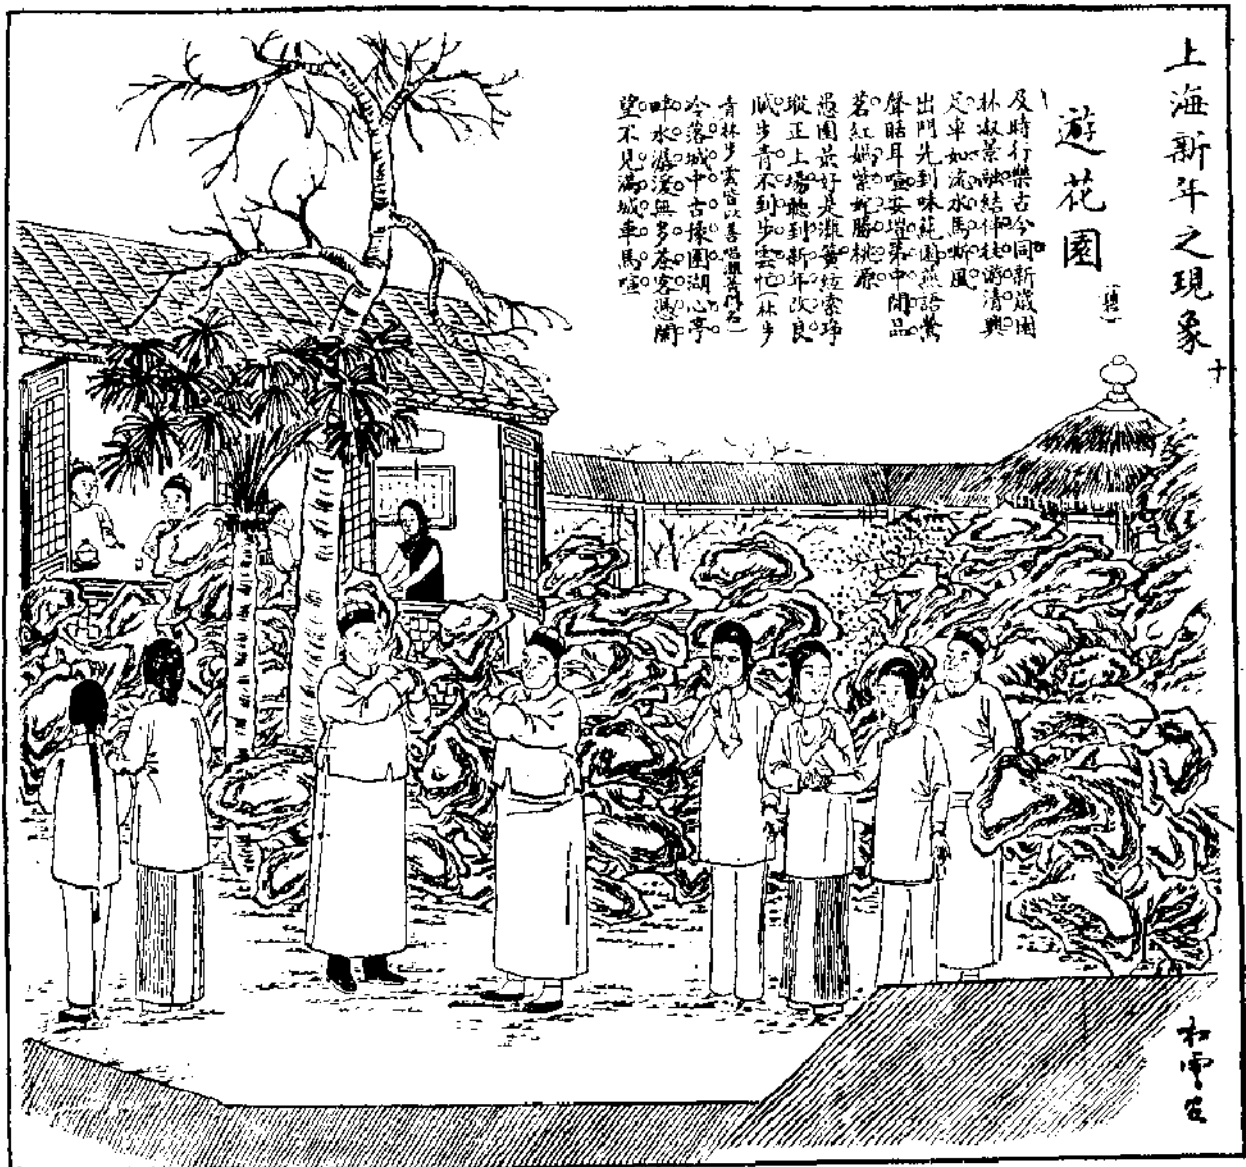 上海新年之現象 十
遊花園
及時行樂古今同新歲園
林淑景融結伴後游清興
足車如流水馬嘶風
出門先到味蒓園燕語鶯
聲聒耳喧安塏第中閒品
茗紅嫣紫奼勝桃源
愚園最好是灘簧絃索琤
瑽正上場聽到新年改良
賦步青不到步雲忙(林步
青林步雲皆以善唱灘簧得名)
冷落城中古豫園湖心亭
畔水潺湲無多茶客憑闌
望不見滿城車馬喧